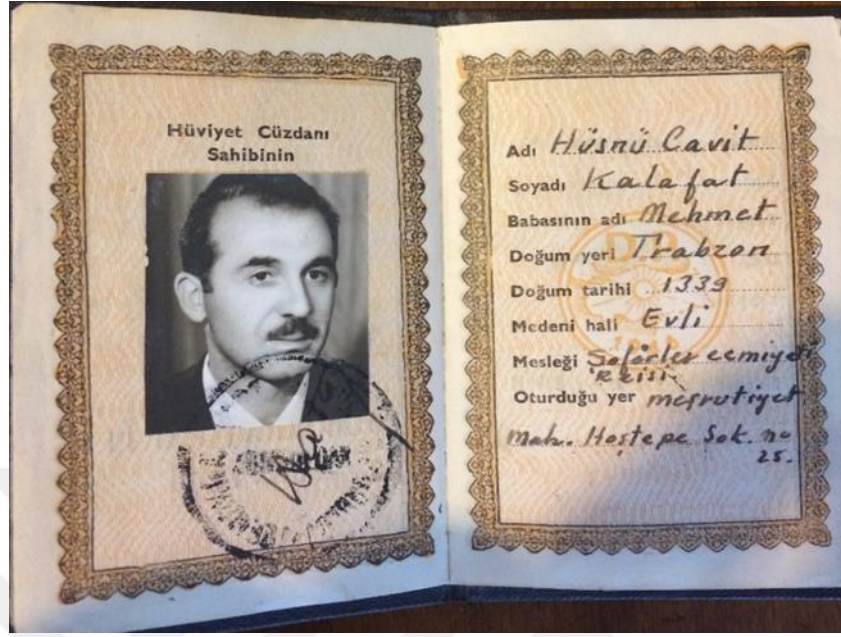 Hüviyet Cüzdanı
Sahibinin
Adı Hüsnü Cavit
Soyadı Kalafat
Babasının adı Mehmet
Doğum yeri Trabzon
Doğum tarihi 1339
Medeni hali Evli
Mesleği Şoförler cemiyeti
Reisi
Oturduğu yer meşrutiyet
Mah. Hoştepe Sok. no
25.